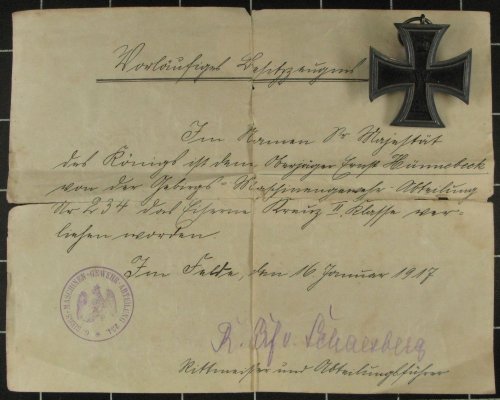 Vorläufiges Besitzzeugnis
Im Namen Sr Majestät
des Königs ist dem Oberjäger Ernst Hünnebeck
von der Gebirgs-Maschinengewehr-Abteilung
Nr 234 das Eiserne Kreuz II. Klasse ver-
liehen worden
Im Felde, den 16 Januar 1917
v. Schaesberg
Rittmeister und Abteilungsführer
GEBIRGS-MASCHINEN-GEWEHR-ABTEILUNG